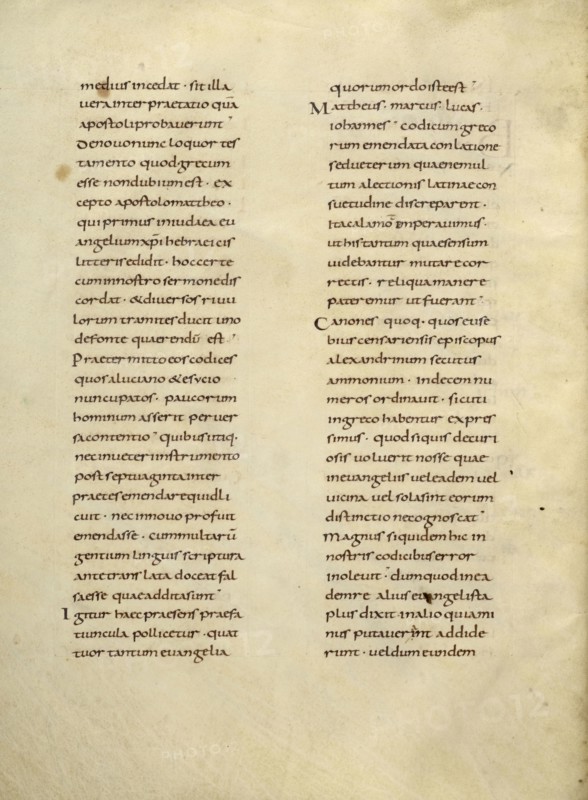 medius incedat · sit illa
uera inter praetatio quā
apostoli probauerunt
Denouo nunc loquor tes
tamento quod grecum
esse non dubium est · ex
cepto apostolo mattheo ·
qui primus in iudaea eu
angelium xp̄i hebraeicis
litteris edidit · hoc certe
cum in nostro sermone dis
cordat · & diuersos riuu
lorum tramites ducit uno
de fonte quaerendū est
Praetermitto eos codices
quos a luciano & esycio
nuncupatos · paucorum
hominum asserit peruer
sa contentio quibus utiq·
nec in ueteri instrumento
post septuaginta inter
praetes emendare quid li
cuit · nec in nouo profuit
emendasse · cum multarū
gentium linguis scriptura
ante translata doceat fal
sa esse quae addita sunt
Igitur haec praesens praefa
tiuncula pollicetur · quat
tuor tantum euangelia
quorum ordo iste est
Mattheus · marcus · lucas ·
iohannes codicum greco
rum emendata conlatione
sed ueterum quae ne mul
tum a lectionis latinae con
suetudine discreparent ·
Ita calamo imperauimus ·
ut his tantum quae sensum
uidebantur mutare cor
rectis · reliqua manere
pateremur ut fuerant
Canones quoq· quos euse
bius censariensis episcopus
alexandrinum secutus
ammonium · in decem nu
meros ordinauit · sicuti
in greco habentur expres
simus · quod si quis de curi
osis uoluerit nosse quae
in euangeliis uel eadem uel
uicina uel sola sint eorum
distinctione cognoscat
Magnus siquidem hic in
nostris codicibus error
inoleuit · dum quod in ea
dem re alius euangelista
plus dixit in alio quia mi
nus putauerint addide
runt · uel dum eundem